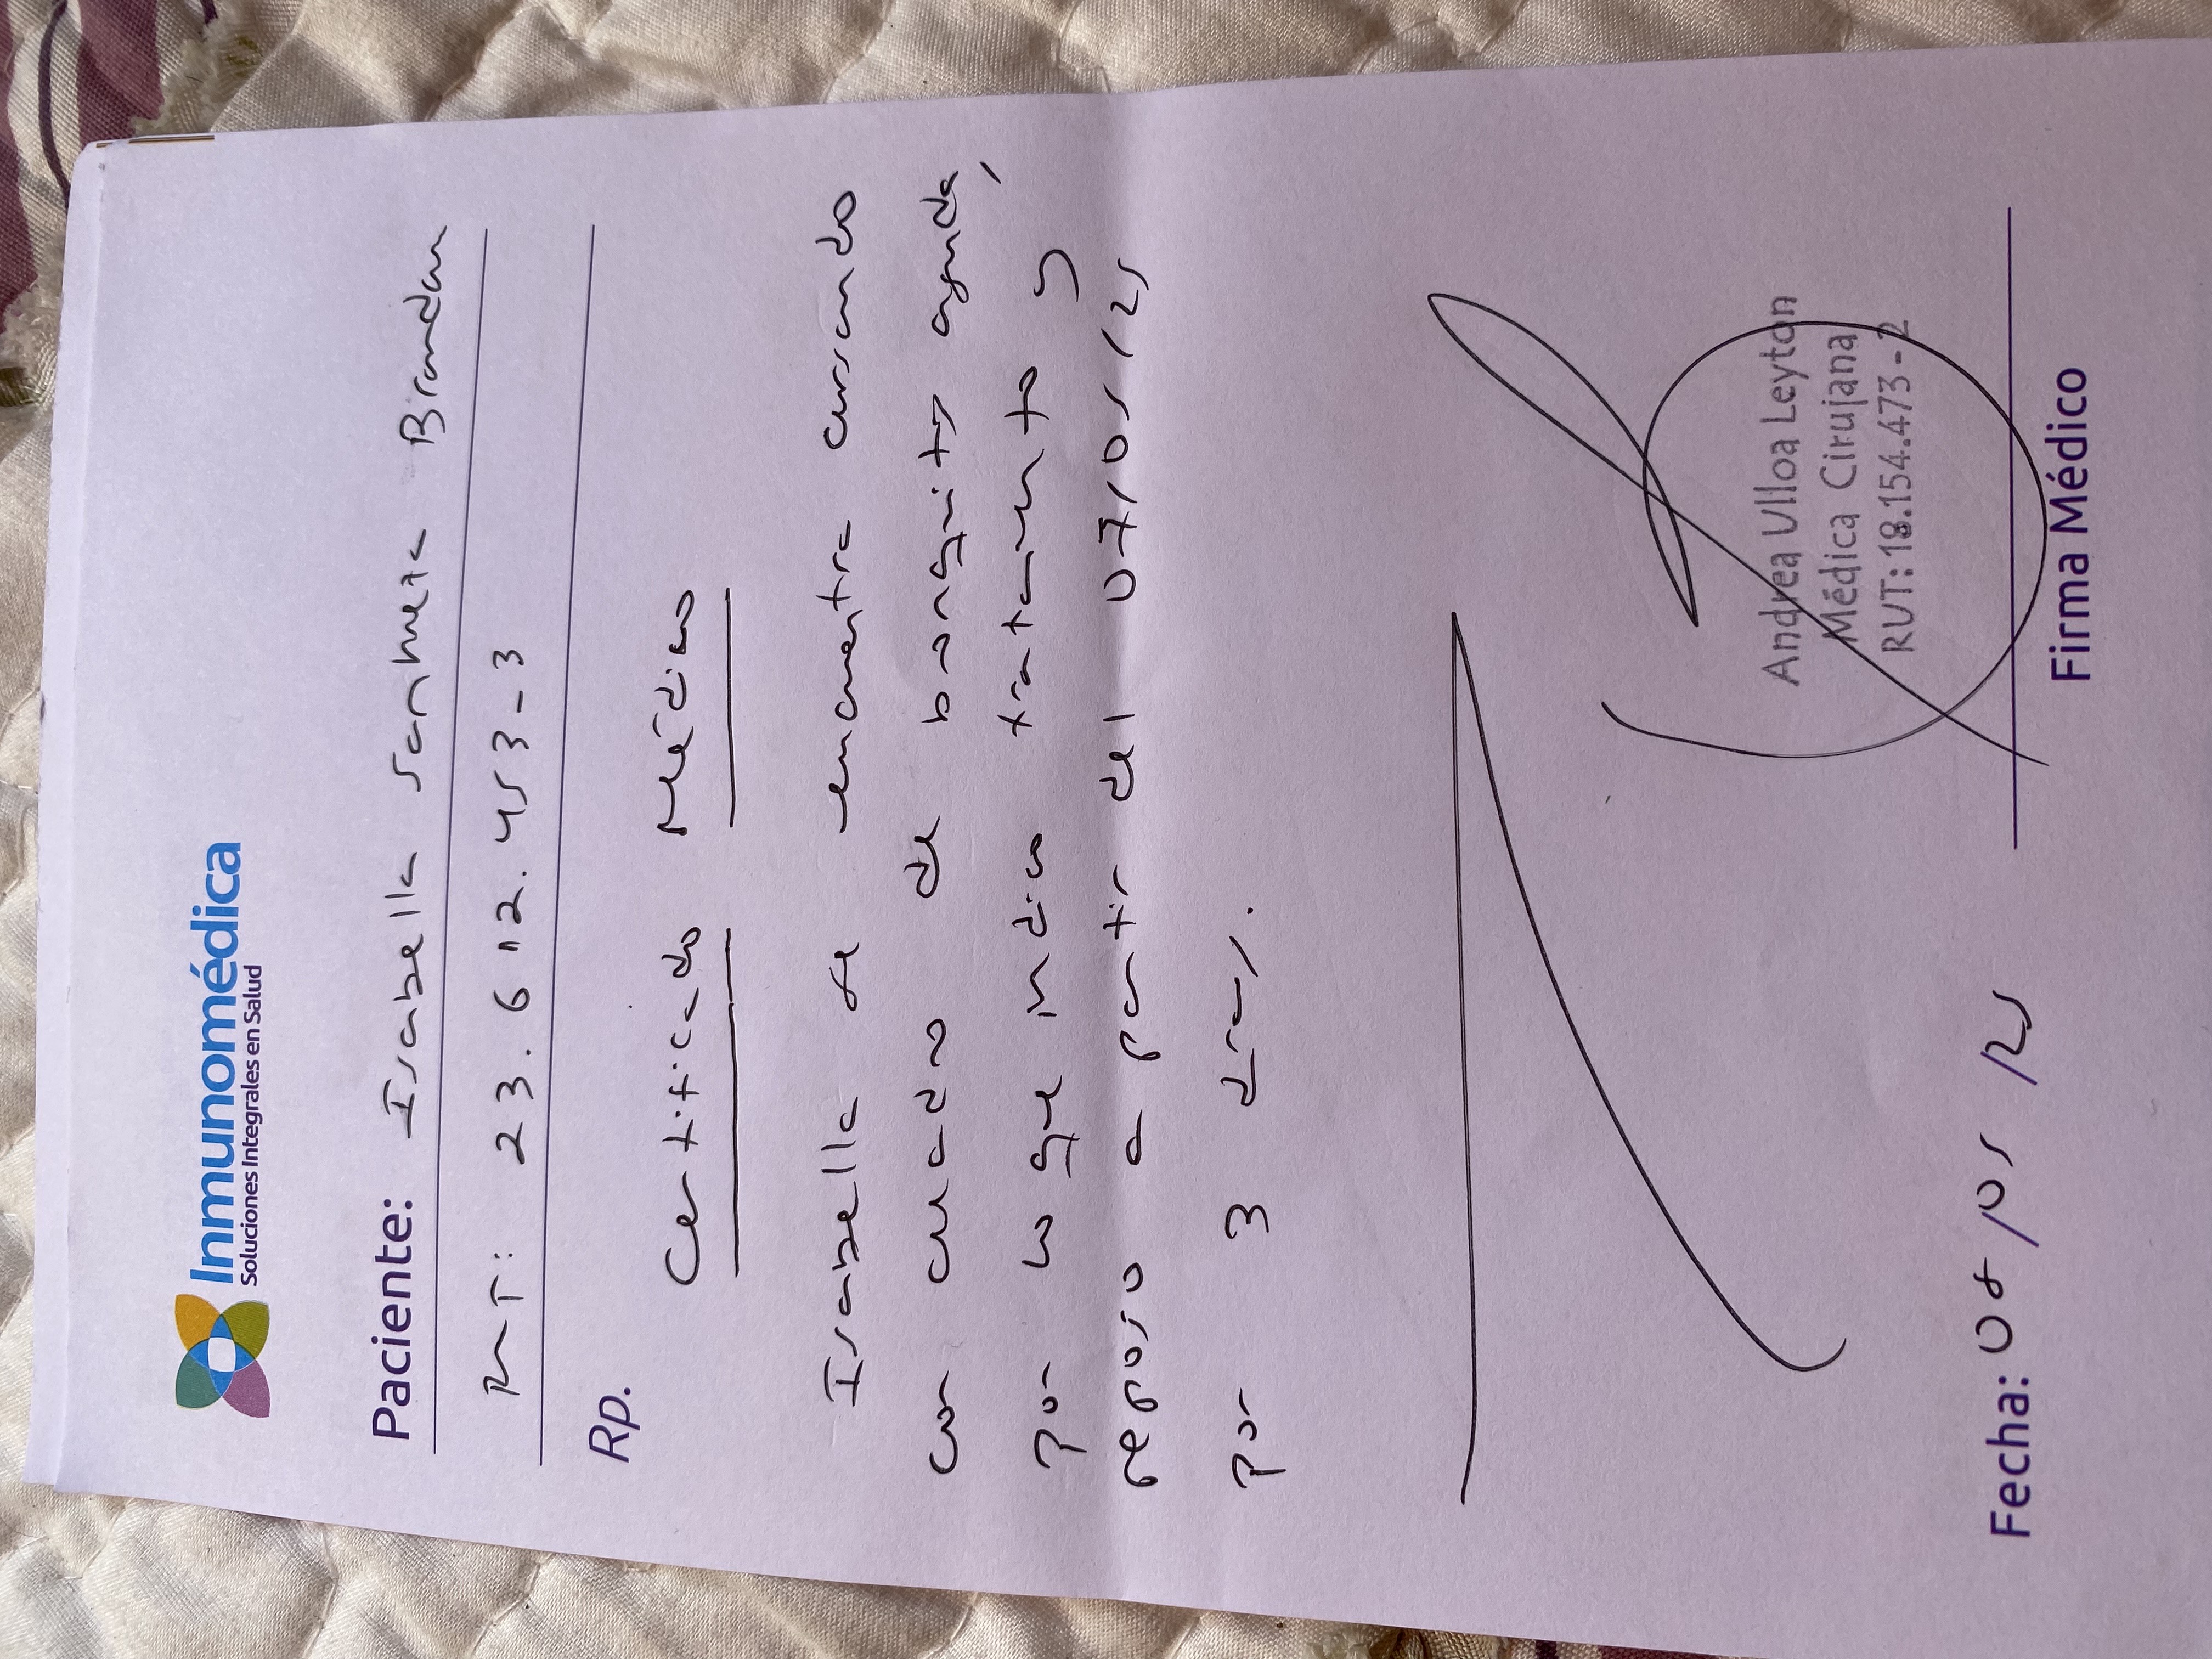 Inmunomédica
Soluciones Integrales en Salud
Paciente: Isabella Sanhueza Brandau
RUT: 23.612.453-3
Rp.
Certificado Médico
Isabella se encuentra cursando
con cuadro de bronquitis aguda,
por lo que indico tratamiento y
reposo a partir del 07/05/25
por 3 días.
Andrea Ulloa Leyton
Médica Cirujana
RUT: 18.154.473-2
Fecha: 08/05/25
Firma Médico